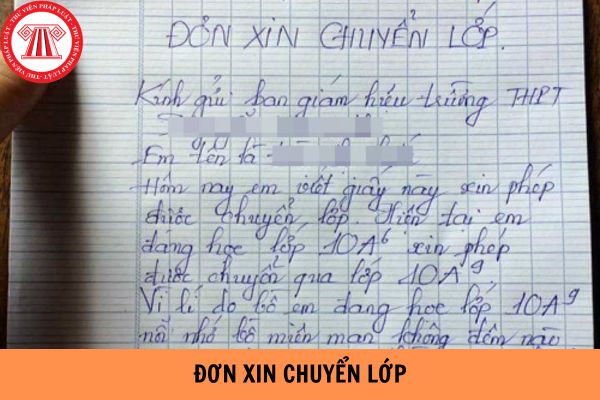 THƯ VIỆN PHÁP LUẬT
ĐƠN XIN CHUYỂN LỚP.
Kính gửi ban giám hiệu trường THPT
Em tên là
Hôm nay em viết giấy này xin phép
được chuyển lớp. Hiện tại em
đang học lớp 10A6 xin phép
được chuyển qua lớp 10A9
Vì lí do bồ em đang học lớp 10A9
nỗi nhớ bồ miên man không đêm nào
ĐƠN XIN CHUYỂN LỚP